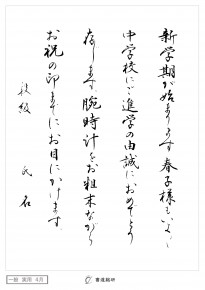 新学期が始まります春子様もいよいよ
中学校にご進学の由誠におめでとう
存じます腕時計をお粗末ながら
お祝の印までにお目にかけます
段級 氏名
一般 実用 4月
書道芸術